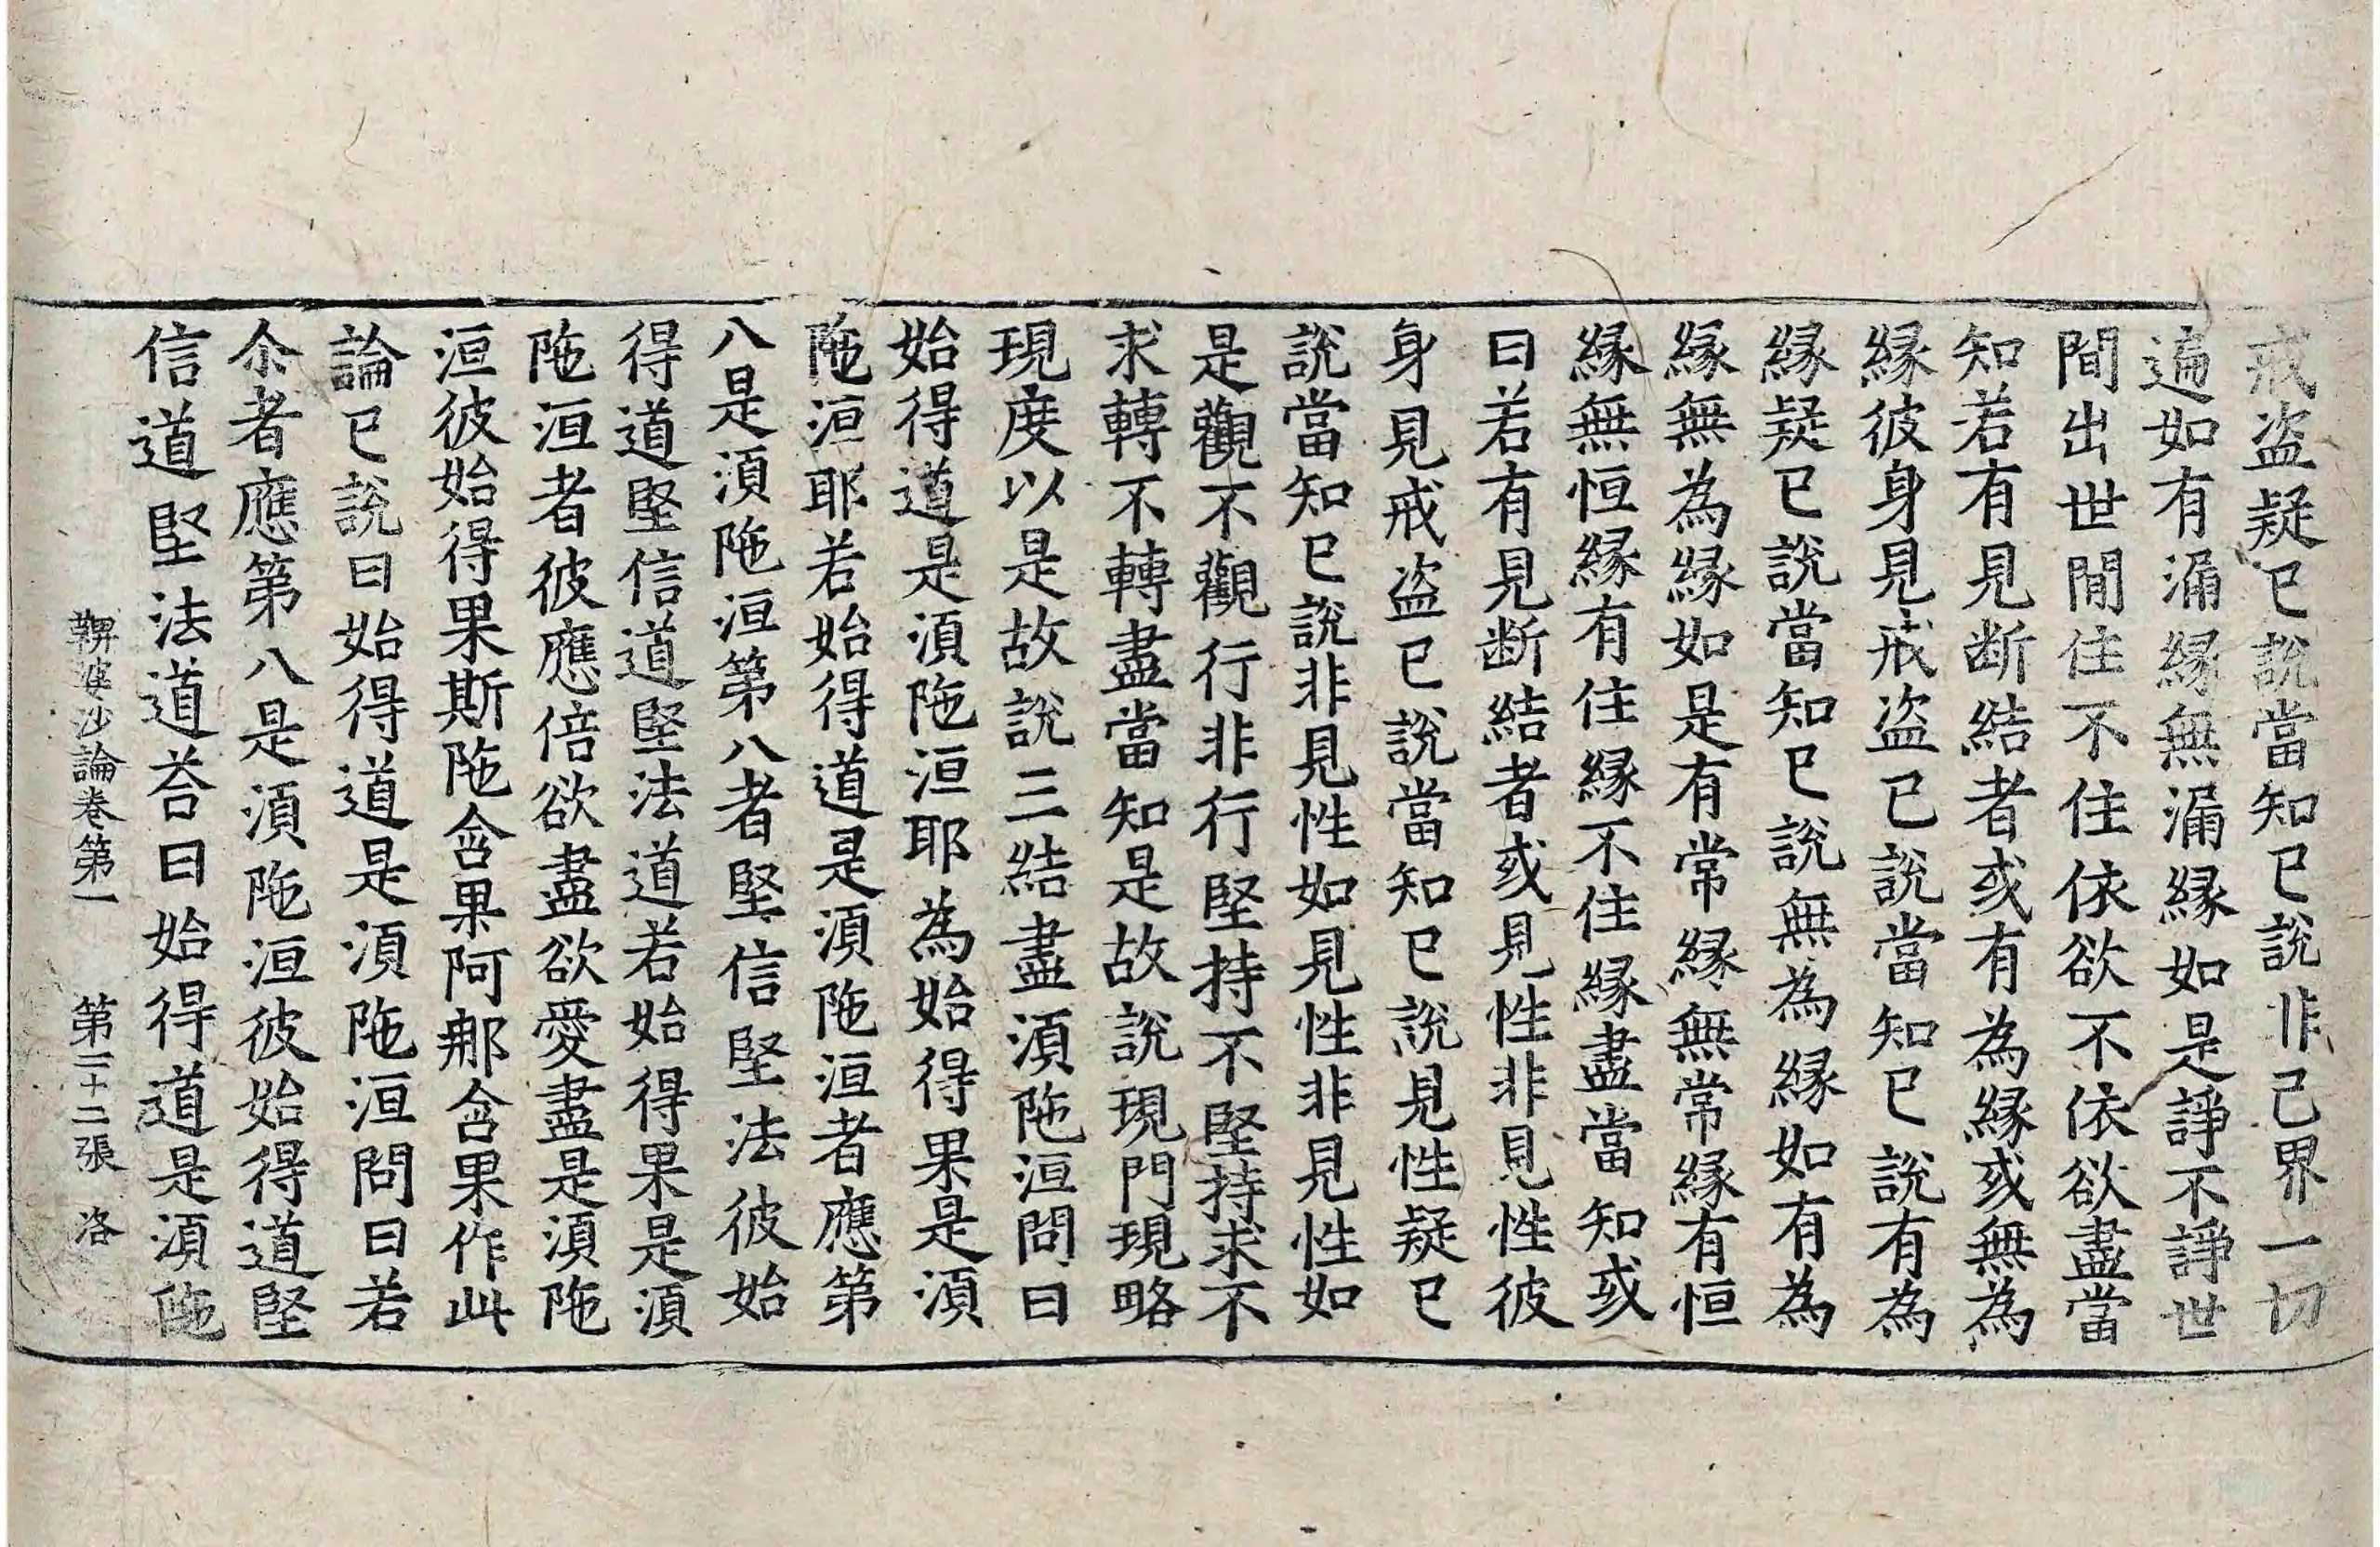 戒盗疑已說當知已說非己界一切
遍如有漏縁無漏縁如是諍不諍世
間出世間住不住依欲不依欲盡當
知若有見断結者或有為縁或無為
縁彼身見戒盗已說當知已說有為
縁疑已說當知已說無為縁如有為
縁無為縁如是有常縁無常縁有恒
縁無恒縁有住縁不住縁盡當知或
曰若有見断結者或見性非見性彼
身見戒盗已說當知已說見性疑已
說當知已說非見性如見性非見性如
是觀不觀行非行堅持不堅持求不
求轉不轉盡當知是故說現門現略
現度以是故說三結盡湏陁洹問曰
始得道是湏陁洹耶為始得果是湏
陁洹耶若始得道是湏陁洹者應第
八是湏陁洹第八者堅信堅法彼始
得道堅信道堅法道若始得果是湏
陁洹者彼應倍欲盡欲愛盡是湏陁
洹彼始得果斯陁含果阿那含果作此
論已說曰始得道是湏陁洹問曰若
尒者應第八是湏陁洹彼始得道堅
信道堅法道荅曰始得道是湏陁
鞞婆沙論卷第一 第三十二張 洛